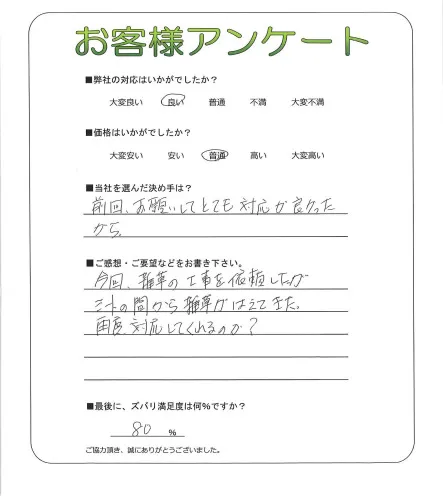 お客様アンケート
■弊社の対応はいかがでしたか？
大変良い 良い 普通 不満 大変不満
■価格はいかがでしたか？
大変安い 安い 普通 高い 大変高い
■当社を選んだ決め手は？
前回、お願いしてとても対応が良かった
から。
■ご感想・ご要望などをお書き下さい。
今回、雑草の工事を依頼したが
シートの間から雑草がはえてきた。
再度対応してくれるのか？
■最後に、ズバリ満足度は何%ですか？
80 %
ご協力頂き、誠にありがとうございました。